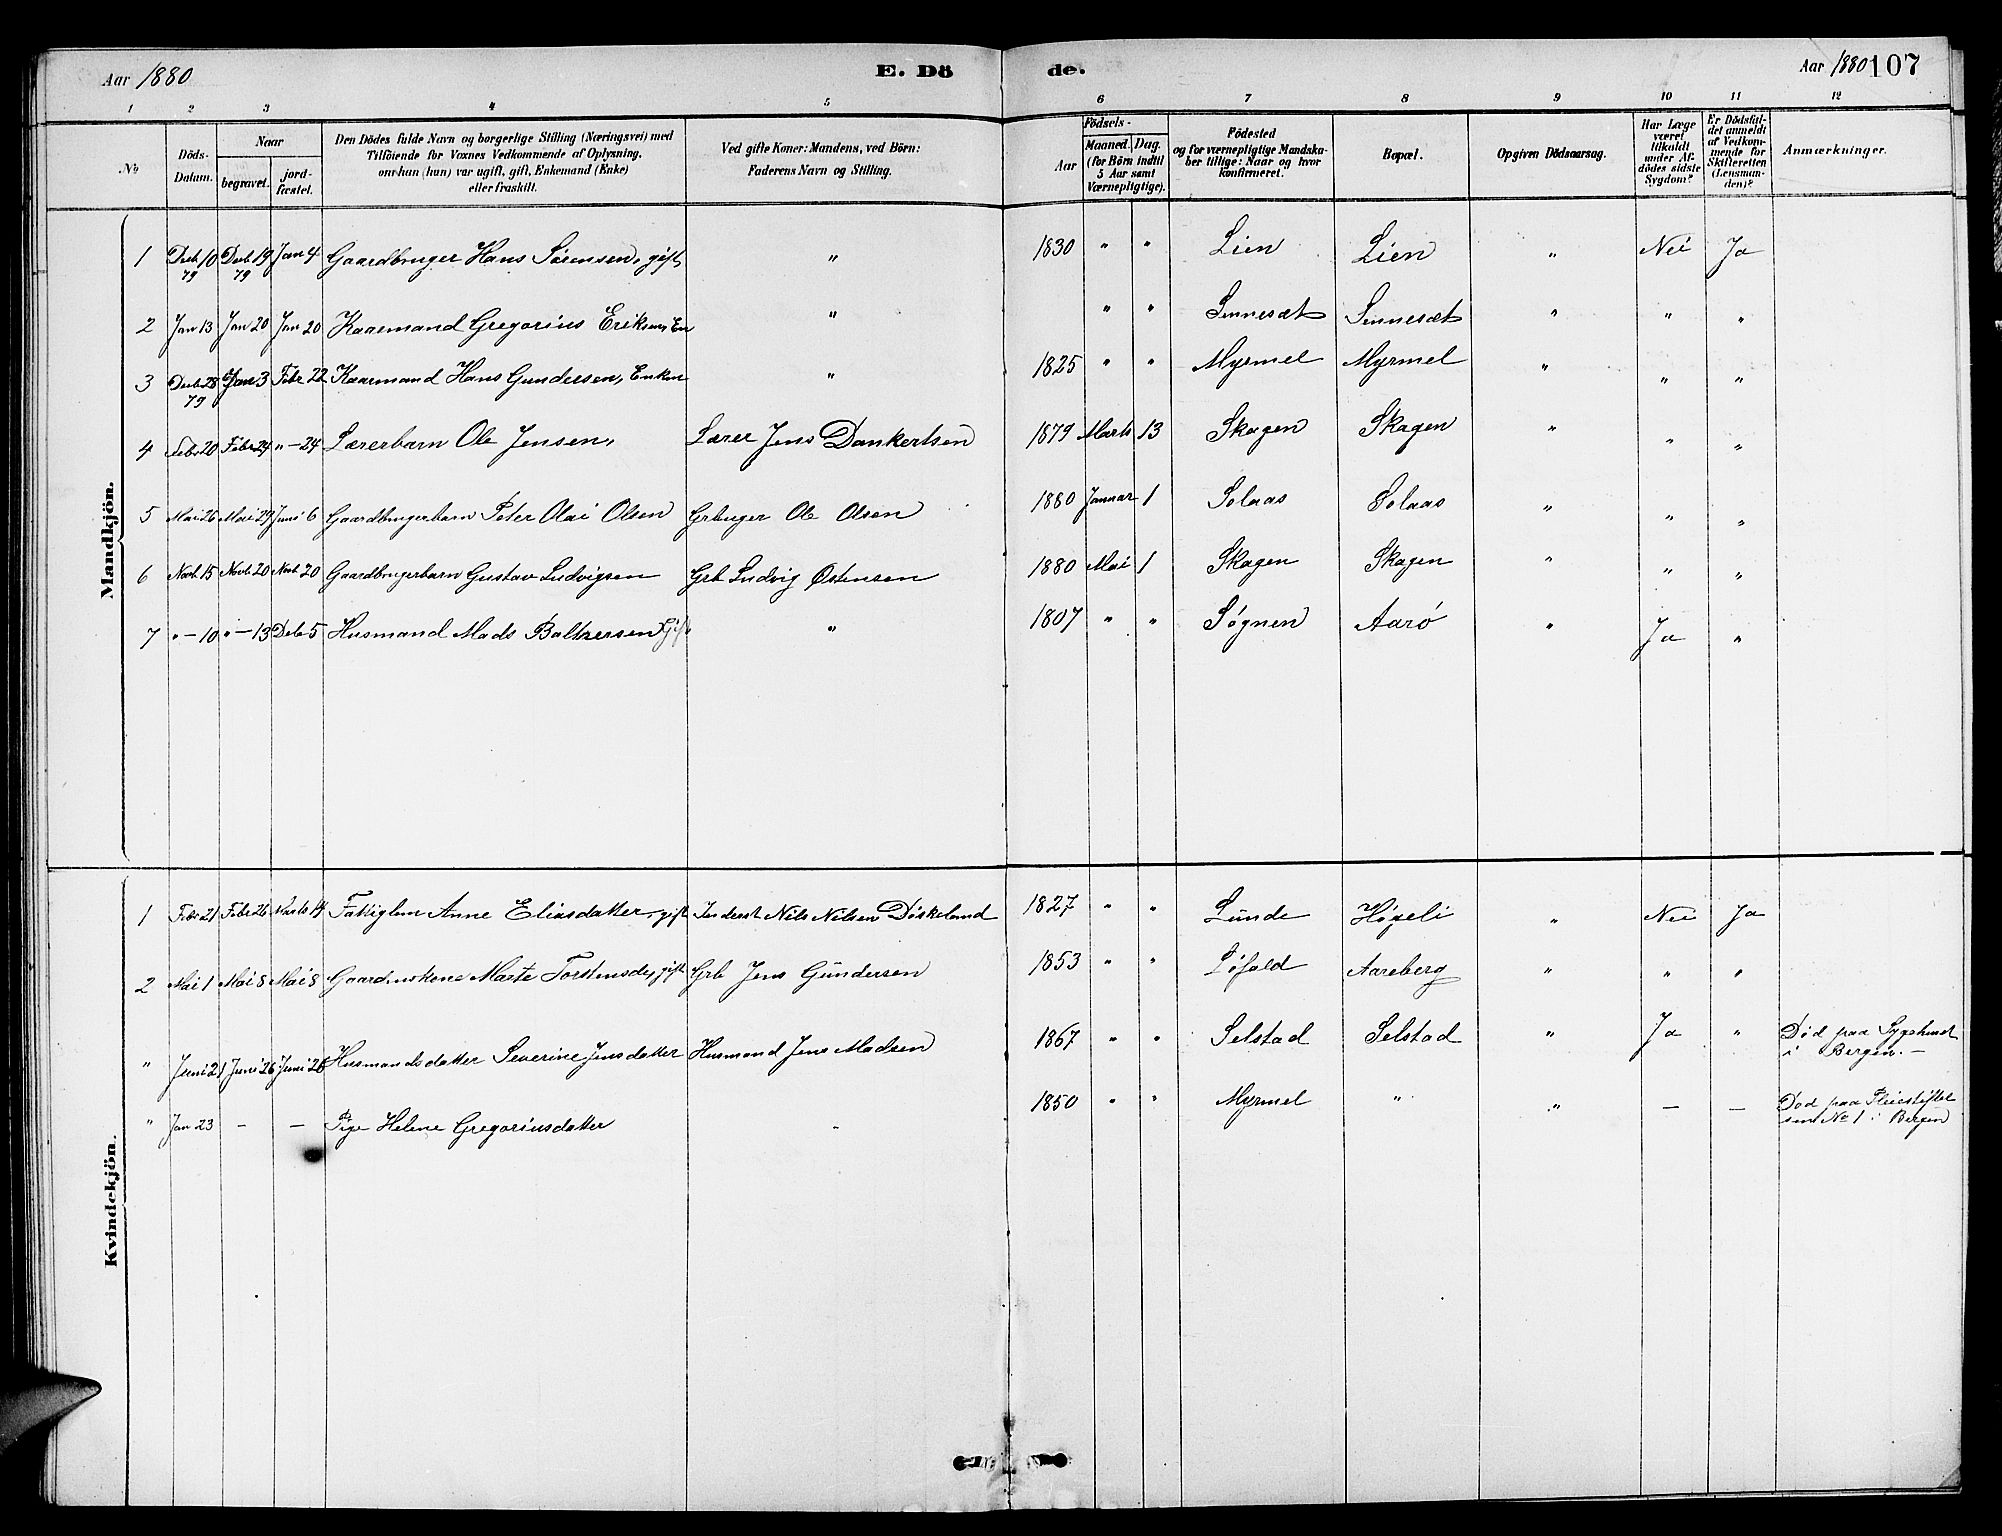 Aar 1880 E. Dö de. Aar 1880 107
1 2 3 4 5 6 7 8 9 10 11 12
No
Döds-Datum.
Naar
begravet.
jord-fæstet.
Den Dödes fulde Navn og borgerlige Stilling (Næringsvei) med
Tilföiende for Voxnes Vedkommende af Oplysning,
om han (hun) var ugift, gift, Enkemand (Enke)
eller fraskilt.
Ved gifte Koner: Mandens, ved Börn:
Faderens Navn og Stilling.
Födsels-
Aar
Maaned. Dag.
(for Börn indtil
5 Aar samt
Værnepligtige).
Födested
og for værnepligtige Mandska-
ber tillige: Naar og hvor
konfirmeret.
Bopæl.
Opgiven Dödsaarsag.
Har Læge
været
tilkaldt
under Af-
dödes sidste
Sygdom?
Er Dödsfal-
det anmeldt
af Vedkom-
mende for
Skifteretten
(Lensman-
den)?
Anmærkninger.
Mandkjön.
1 Decb 10 79 Decb 19 79 Jan 4 Gaardbruger Hans Sørensen, gift " 1830 " " Lien Lien " Nei Ja
2 Jan 13 Jan 20 Jan 20 Kaaemand Gregorius Eriksen, En " " " Sennesæt Sennesæt " " "
3 Decb 28 79 Jan 3 Febr 22 Kaaemand Hans Gundersen, Enkm " 1825 " " Myrmel Myrmel " " "
4 Febr 20 Febr 24 " — 24 Lærerbarn Ole Jensen, Lærer Jens Dankertsen 1879 Marts 13 Skagen Skagen " " "
5 Mai 26 Mai 29 Juni 6 Gaardbrugerbarn Peter Olai Olsen Grbruger Ole Olsen 1880 Januar 1 Solaas Solaas " " "
6 Novb 15 Novb 20 Novb 20 Gaardbrugerbarn Gustav Ludvigsen Grb Ludvig Østensen 1880 Mai 1 Skagen Skagen " " "
7 " — 10 " — 13 Decb 5 Husmand Mads Baltzersen Gift " 1807 " " Søgnen Aarø " Ja "
Kvindekjön.
1 Febr 21 Febr 26 Marts 14 Fattiglem Anne Eliasdatter, gift Inderst Nils Nilsen Døskeland 1827 " " Lunde Høgeli " Nei Ja
2 Mai 1 Mai 8 Mai 8 Gaardmskone Marte Torstensdr, gift Grb Jens Gundersen 1853 " " Løfald Aareberg " " "
" Juni 21 Juni 26 Juni 26 Husmandsdatter Severine Jensdatter Husmand Jens Madsen 1867 " " Selstad Selstad " Ja " Død paa Sygehuset
i Bergen. —
" Jan 23 — — Pige Helene Gregoriusdatter " 1850 " " Myrmel " " — — Død paa Pleiestiftel
sen No 1 i Bergen